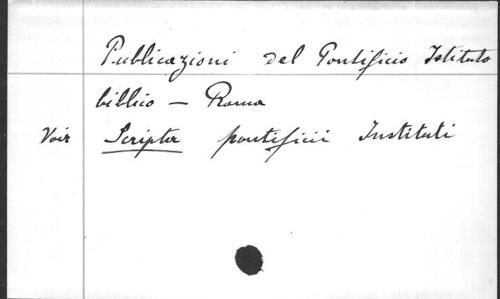 Publicazioni del Pontificio Istituto
biblico — Roma
Voir Scripta pontificii Instituti